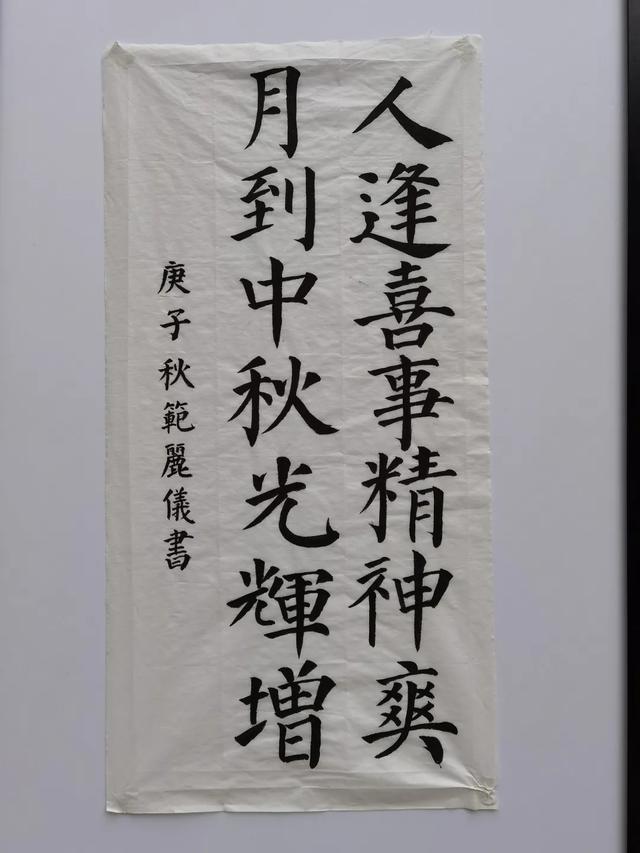 人逢喜事精神爽
月到中秋光輝増
庚子秋範麗儀書